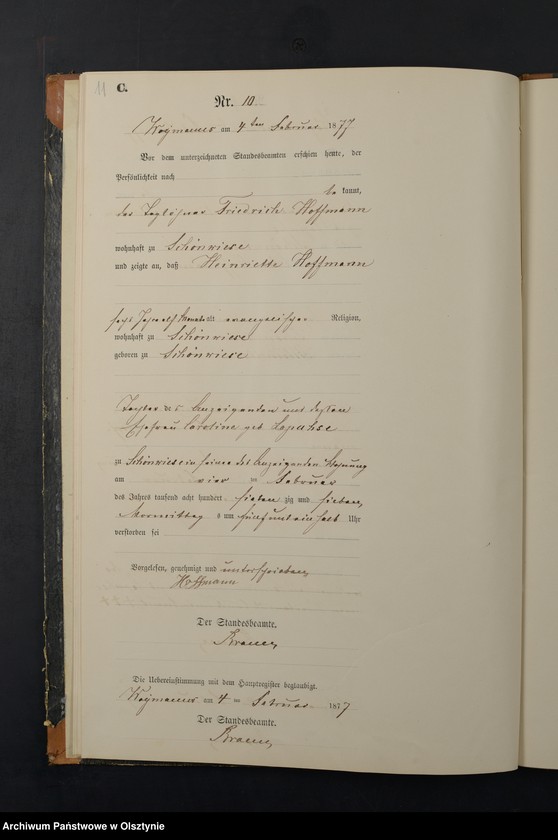 11
C.
Nr. 10
am 4ten Februar 1877
Vor dem unterzeichneten Standesbeamten erschien heute, der
Persönlichkeit nach
be kannt,
der Taglöhner Friedrich Hoffmann
wohnhaft zu Schönwiese
und zeigte an, daß Heinriette Hoffmann
sechs Jahr elf Monat alt evangelischer Religion,
wohnhaft zu Schönwiese
geboren zu Schönwiese
Tochter des Anzeigenden und dessen
Ehefrau Caroline geb
zu Schönwiese in seiner des Anzeigenden Wohnung
am vier ten Februar
des Jahres tausend acht hundert sieben zig und sieben,
Vormittag s um fünf und ein halb Uhr
verstorben sei
Vorgelesen, genehmigt und unterschrieben
Hoffmann
Der Standesbeamte.
Die Uebereinstimmung mit dem Hauptregister beglaubigt.
am 4 ten Februar 1877
Der Standesbeamte.
Archiwum Państwowe w Olsztynie